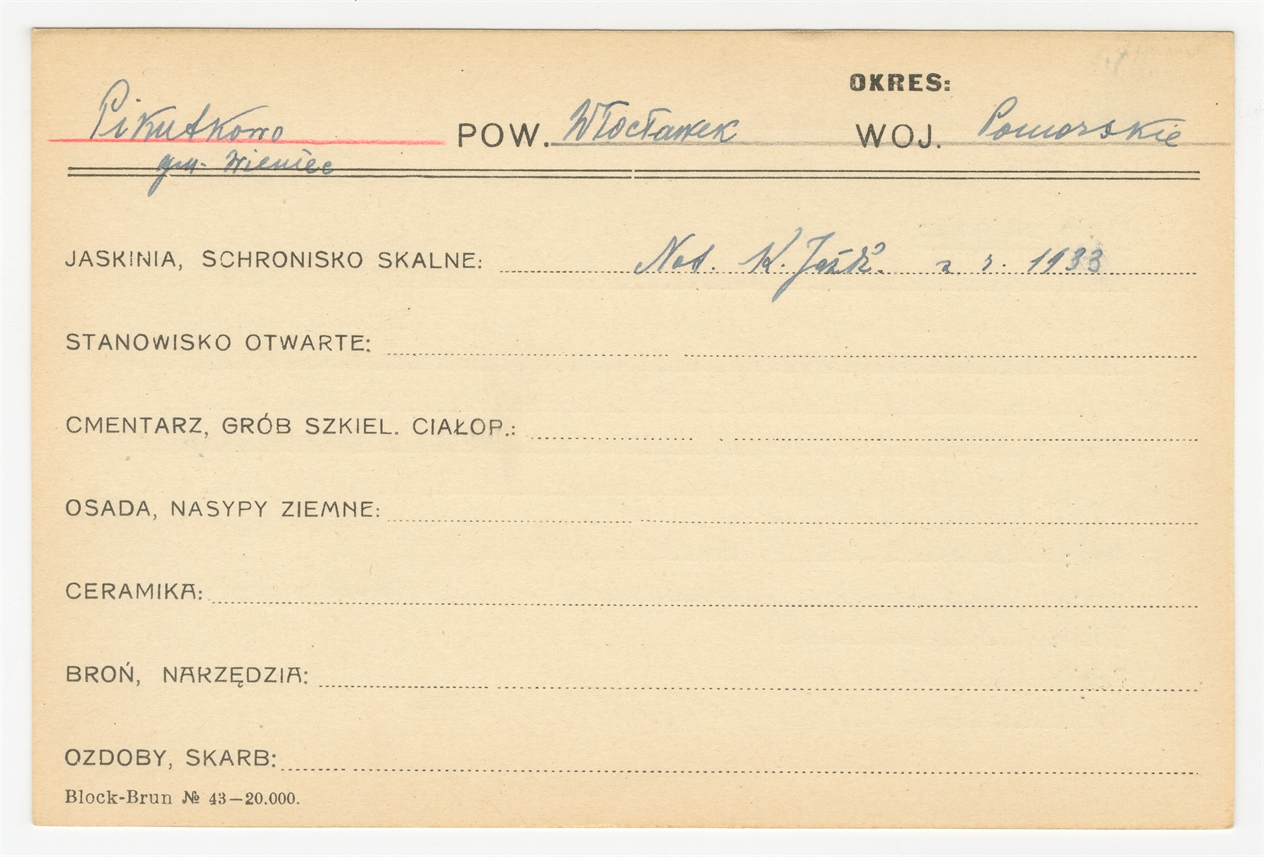 OKRES:
Pikutkowo POW. Włocławek WOJ. Pomorskie
gm. Wieniec
JASKINIA, SCHRONISKO SKALNE: Not. K. Jażdż. z r. 1933
STANOWISKO OTWARTE:
CMENTARZ, GRÓB SZKIEL. CIAŁOP.:
OSADA, NASYPY ZIEMNE:
CERAMIKA:
BROŃ, NARZĘDZIA:
OZDOBY, SKARB:
Block-Brun № 43—20.000.